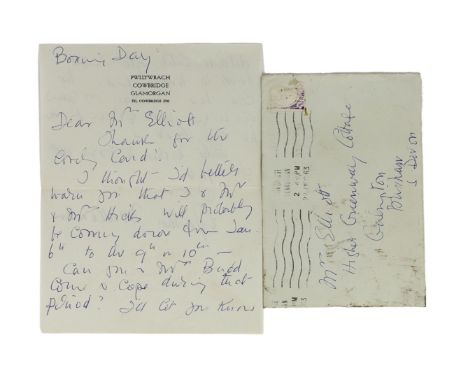 Boxing Day
PWLLYWRACH
COWBRIDGE
GLAMORGAN
TEL COWBRIDGE
Dear Mrs Elliott
Thanks for the
lovely Card!
I thought I'd better
warn you that I & Mr
& Mrs Hicks will probably
be coming down from Jan.
6th to the 9th or 10th —
Can you & Mrs
come & cope during that
period? I'll let you know
Mrs Elliott
Higher Greenway Cottage
Galmpton
Brixham
S Devon